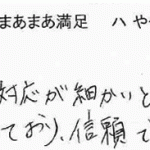 まあまあ満足 ハ や
対応が細かいと
ており、信頼で